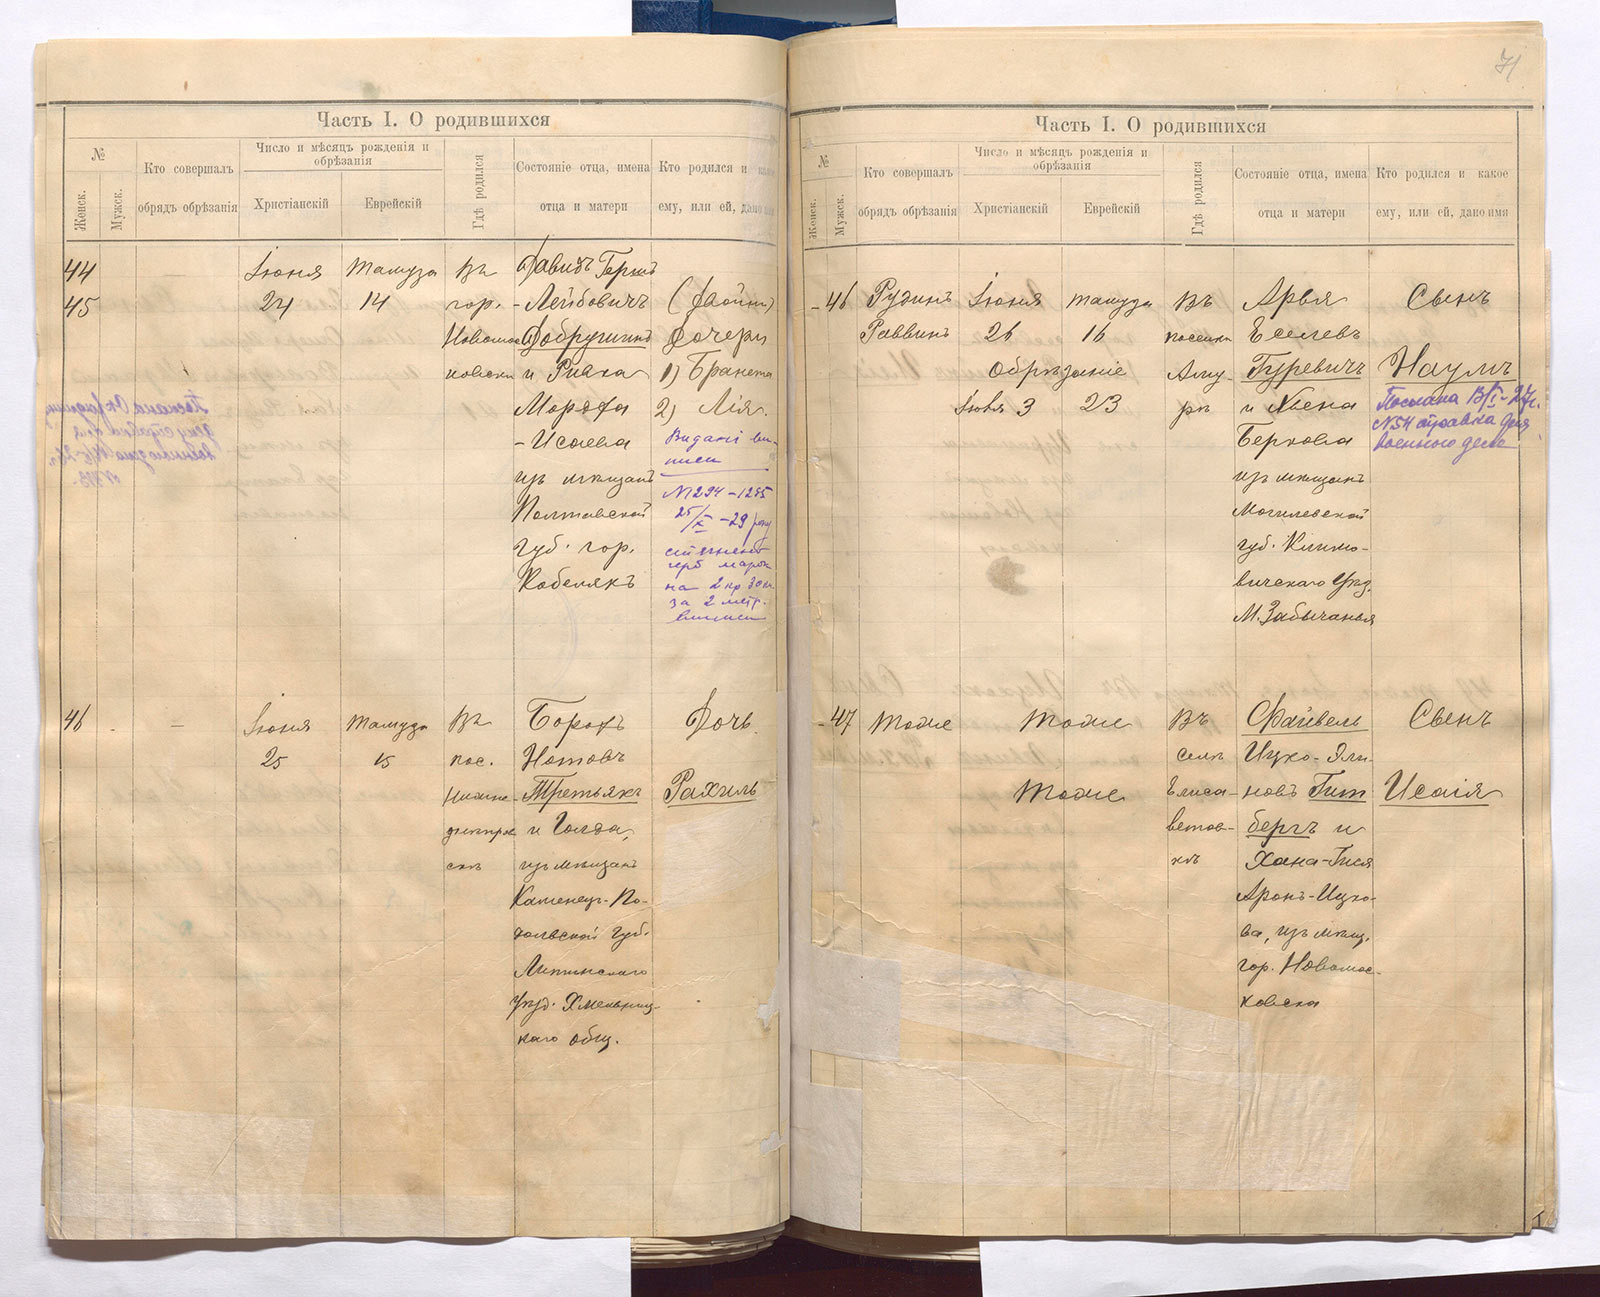 Часть I. О родившихся
№
Женск.
Мужск.
Кто совершалъ
обрядъ обрѣзанія
Число и мѣсяцъ рожденія и
обрѣзанія
Христіанскій
Еврейскій
Гдѣ родился
Состояніе отца, имена
отца и матери
Кто родился и какое
ему, или ей, дано имя
44
45
—
Іюня
24
Тамуза
14
Въ
гор.
Новомос
ковскѣ
Давидъ Гершъ
- Лейбовичъ
Добрушинъ
и Ривка
Мордфа
- Исаева
изъ мѣщанъ
Полтавской
Губ. гор.
Кобелякъ
(Двойни)
Дочери
1) Бранета
2) Лія.
Видані ви-
писи
№1294-1295
25/X -29 року
герб марок
на 2 кр 30 к.
за 2 метр.
виписи
46
—
Іюня
25
Тамуза
15
Въ
пос.
Нижне-
днѣпров
скѣ
Борохъ
Нотовъ
Третьякъ
и Голда,
изъ мѣщанъ
Каменец-По-
дольской Губ.
Литинскаго
Уѣзд. Хмельниц-
каго общ.
Дочь
Рахиль
71
Часть I. О родившихся
№
Женск.
Мужск.
Кто совершалъ
обрядъ обрѣзанія
Число и мѣсяцъ рожденія и
обрѣзанія
Христіанскій
Еврейскій
Гдѣ родился
Состояніе отца, имена
отца и матери
Кто родился и какое
ему, или ей, дано имя
46
Рудинъ
Раввинъ
Іюня
26
Тамуза
16
Обрѣзаніе
Іюля 3
23
Въ
поселкѣ
Аму-
рѣ
Арья
Еселевъ
Гуревичъ
и Хьена
Беркова
изъ мѣщанъ
Могилевской
губ. Климо-
вичскаго Уѣзд.
М. Забычанья
Сынъ
Наумъ
Послана 13/I - 27г.
№54 справка для
военного дела
47
Тоже
Тоже
Тоже
Въ
селѣ
Елиса-
ветов-
кѣ
Файвель
Ицко-Эли-
новъ Гит
бергъ и
Хана-Гися
Аронъ-Ицко-
ва, изъ мѣщ.
гор. Новомос-
ковска
Сынъ
Исаія